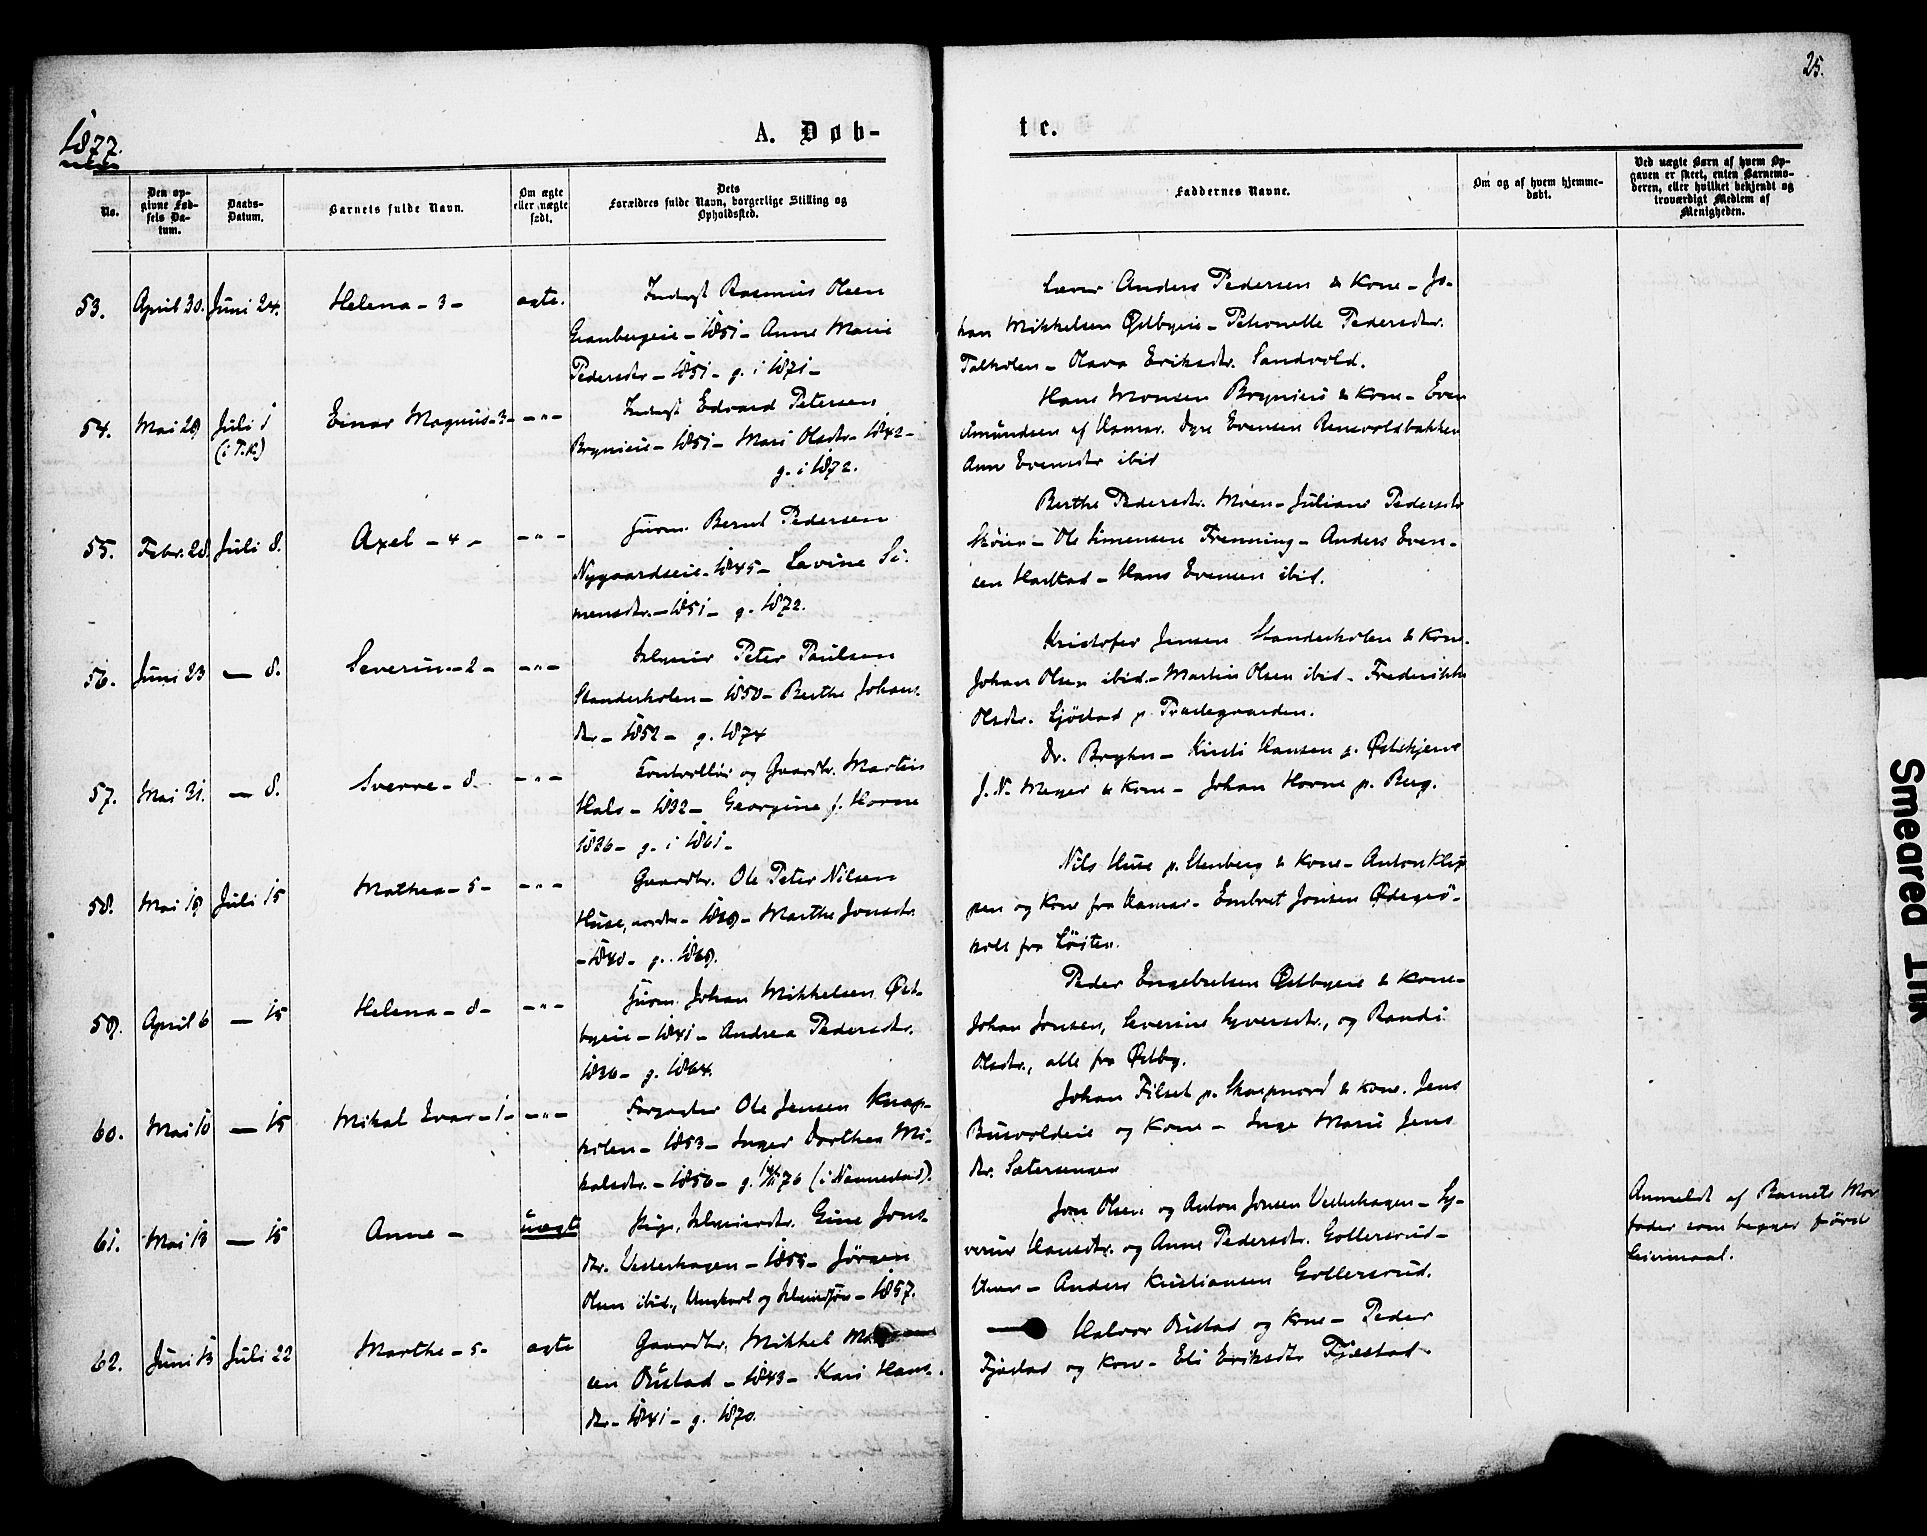 25.
1877.
A. Døb-
te.
No.
Den op-
givne Fød-
sels Da-
tum.
Daabs-
Datum.
Barnets fulde Navn.
Om ægte
eller uægte
født.
Dets
Forældres fulde Navn, borgerlige Stilling og
Opholdssted.
Faddernes Navne.
Om og af hvem hjemme-
døbt.
Ved uægte Børn af hvem Op-
gaven er skeet, enten Barnemo-
deren, eller hvilket bekjendt og
troværdigt Medlem af
Menigheden.
53. April 30. Juni 24. Helena - 3 - ægte.
Inderst Rasmus Olsen
Granbergeie - 1851 - Anne Marie
Pedersdtr - 1851 - g. i 1871 -
Anders Pedersen & Kone - Jo-
han Mikkelsen Østbyeie - Petronelle Pedersdtr.
- Olava Eriksdtr. Sandvold.
54. Mai 29 Juli 1 (i T.K.) Einar Magnus - 3 - - " -
Inderst Edvard Petersen
Brynieie - 1851 - Mari Olsdtr - 1842 -
g. i 1872.
Hans Monsen Brynieie & Kone - Even
Amundsen af Hamar. Evensen
Anne Evensdtr ibid
55. Febr. 28 Juli 8. Axel - 4 - - " -
Husm. Bernt Pedersen
Nygaardseie - 1845 - Lovine Si-
mensdtr. - 1851 - g. 1872.
Berthe Pedersdtr. Moen - Juliane Pedersdtr
Skøien - Ole Simensen Frenning - Anders Even-
sen Harstad - Hans Evensen ibid.
56. Juni 23 - 8. Severin - 2 - - " -
Selveier Peter Paulsen
Standerholen - 1850 - Berthe Johans-
dtr - 1852 - g. 1874
Kristofer Jensen Standerholen & Kone.
Johan Olsen ibid. - Martin Olsen ibid - Frederikke
Olsdtr. Sjøstad p. Præstegaarden.
57. Mai 31. - 8. Sverre - 8. - " -
Kontrollør og Gaardbr. Martin
Hals - 1832 - Georgine f. Horne
1836 - g. i 1861 -
Dr. Bryhn - Kirsti Hansen p.
J. N. Meyer & Kone - Johan Horne p. Berg.
58. Mai 19 Juli 15 Mathea - 5 - - " -
Gaardbr. Ole Peter Nilsen
Huse, nordre - 1839 - Marthe Jonsdtr.
- 1840 - g. 1869.
Nils Huse p. Stenberg & Kone - Anton Klip
pen og Kone fra Hamar - Embret Jonsen
fra Løiten.
59. April 6 - 15 Helena - 8 - - " -
Husm. Johan Mikkelsen Øst-
byeie - 1841 - Andrea Pedersdtr.
1836 - g. 1864.
Peder Engebretsen Østbyeie & Kone -
Johan Jonsen, Severine Syversdtr., og Randi
Olsdtr., alle fra Østby.
60. Mai 10 - 15 Mikal Ivar - 1 - - " -
Forpagter Ole Jensen Knap-
holen - 1853 - Inger Dorthea Mi-
kalsdtr. - 1856 - g. 76 (i Nannestad).
Johan Filset p. Skarpnord & Kone. Jens
Busvoldeie og Kone - Inge Marie Jens
dtr. Sætersengen
61. Mai 13 - 15 Anne - uægte
Pige, Gine Jons-
dtr. Vesterhagen - 1855 - Jørgen
Olsen ibid., Ungkarl og - 1857.
Jon Olsen og Anton Jonsen Vesterhagen - Sy-
verine Hansdtr. og Anne Pedersdtr. Gollersrud-
- Anders Kristiansen Gollersrud.
Anmeldt af Barnets Mor
fader som begges første
Leiermaal.
62. Juni 13 Juli 22 Marthe - 5 - ægte
Gaardbr. Mikkel
sen Rustad - 1843 - Kari Hans-
dtr. - 1841 - g. 1870.
Halvor Rustad og Kone - Peder
Fjæstad og Kone - Eli Eriksdtr Fjæstad.
Smeared Ink